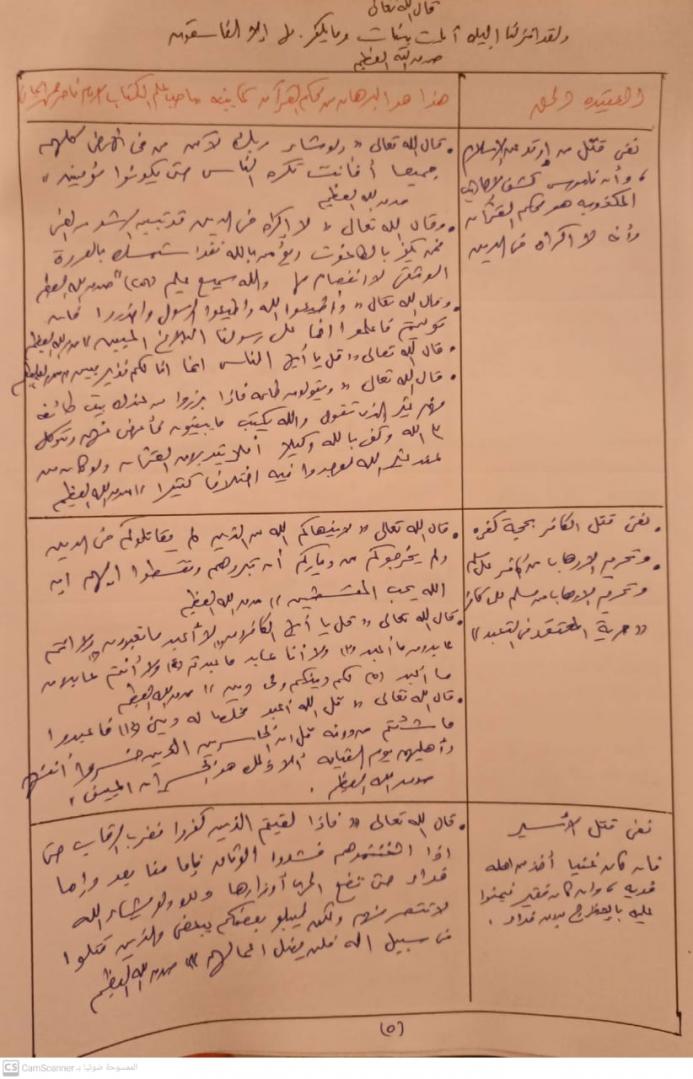 قال الله تعالى
ولقد انزلنا اليك آيات بينات وما يكفر بها إلا الفاسقون
صدق الله العظيم
العقيده والحق
هذا هو البرهان من محكم القرآن
نفي قتل من ارتد عن الإسلام
وأن ناموس كشف الأحاديث
المكذوبه هو محكم القرآن
وأنه لا اكراه في الدين
• قال الله تعالى » ولو شاء ربك لآمن من في الأرض كلهم
جميعا أفأنت تكره الناس حتى يكونوا مؤمنين »
صدق الله العظيم
• وقال الله تعالى » لا إكراه في الدين قد تبين الرشد من الغي
فمن يكفر بالطاغوت ويؤمن بالله فقد استمسك بالعروة
الوثقى لا انفصام لها والله سميع عليم (٢٥٦) » صدق الله العظيم
• وقال الله تعالى » وأطيعوا الله وأطيعوا الرسول واحذروا فان
توليتم فاعلموا انما على رسولنا البلاغ المبين » صدق الله العظيم
• قال الله تعالى » قل يا أيها الناس انما انا لكم نذير مبين » صدق الله العظيم
• قال الله تعالى » ويقولون طاعه فإذا برزوا من عندك بيت طائفه
منهم غير الذي تقول والله يكتب ما يبيتون فأعرض عنهم وتوكل
على الله وكفى بالله وكيلا أفلا يتدبرون القرآن ولو كان من
عند غير الله لوجدوا فيه اختلافا كثيرا » صدق الله العظيم
• نفي قتل الكافر بحجة كفره
• وتحريم الإرهاب من كافر على مسلم
وتحريم الإرهاب من مسلم على كافر
» حرية المعتقد في التعبد »
• قال الله تعالى » لا ينهاكم الله عن الذين لم يقاتلوكم في الدين
ولم يخرجوكم من دياركم أن تبروهم وتقسطوا إليهم إن
الله يحب المقسطين » صدق الله العظيم
• قال الله تعالى » قل يا أيها الكافرون لا أعبد ما تعبدون ولا انتم
عابدون ما أعبد (٣) ولا أنا عابد ما عبدتم (٤) ولا أنتم عابدون
ما أعبد (٥) لكم دينكم ولي دين » صدق الله العظيم
• قال الله تعالى » قل الله أعبد مخلصا له ديني (١٤) فاعبدوا
ما شئتم من دونه قل ان الخاسرين الذين خسروا أنفسهم
وأهليهم يوم القيامه ألا ذلك هو الخسران المبين »
صدق الله العظيم .
نفي قتل الأسير
فان كان غنيا أخذ من اهله
فديه ، وان كان فقير فيمنوا
عليه بدون فداء .
• قال الله تعالى » فاذا لقيتم الذين كفروا فضرب الرقاب حتى
اذا اثخنتموهم فشدوا الوثاق فإما منا بعد وإما
فداء حتى تضع الحرب أوزارها ذلك ولو يشاء الله
لانتصر منهم ولكن ليبلو بعضكم ببعض والذين قتلوا
في سبيل الله فلن يضل اعمالهم » صدق الله العظيم
(٥)
CS CamScanner الممسوحة ضوئيا بـ